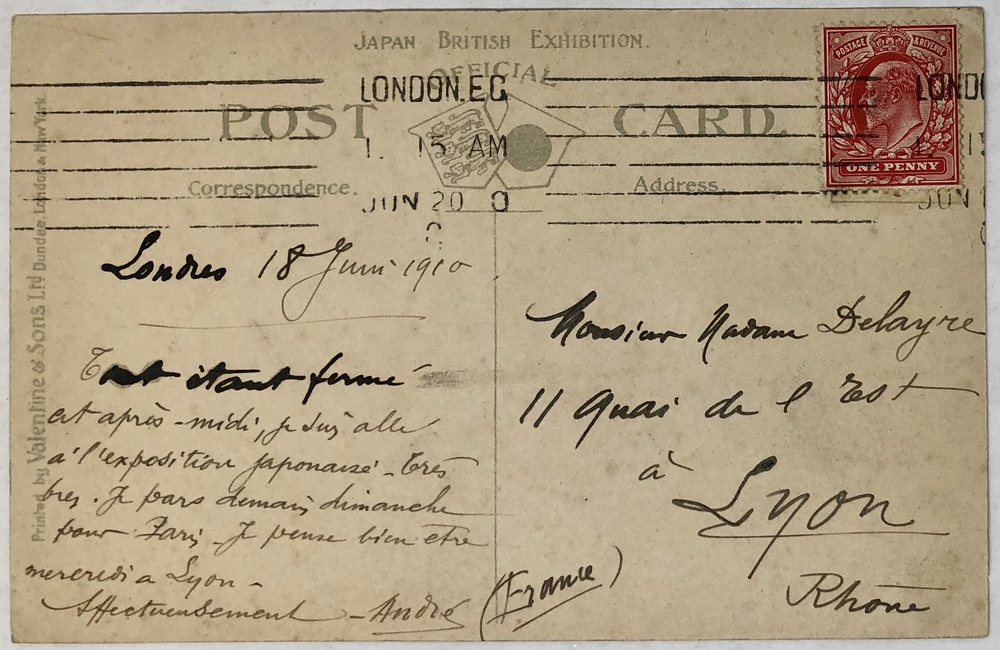 JAPAN BRITISH EXHIBITION.
OFFICIAL
POST CARD.
Correspondence.
Address.
Printed by Valentine & Sons Ltd Dundee, London & New York.
POSTAGE & REVENUE
ONE PENNY
LONDON.E.C
1. 15 AM
JUN 20 0
LONDO
JUN
Londres 18 Juin 1910
Tout étant fermé
cet après-midi, je suis allé
à l'exposition japonaise. Très
bien. Je pars demain dimanche
pour Paris. Je pense bien être
mercredi a Lyon -
Affectueusement - André
Monsieur Madame Delayre
11 Quai de l Est
à
Lyon
Rhône
(France)